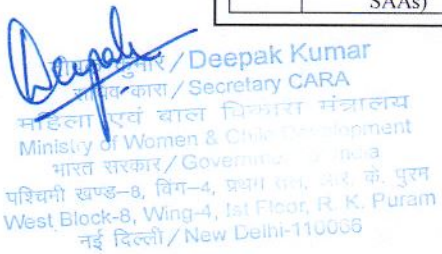 SAAs)
Deepak
कुमार / Deepak Kumar
सचिव-कारा / Secretary CARA
महिला एवं बाल विकास मंत्रालय
Ministry of Women & Child Development
भारत सरकार / Government India
पश्चिमी खण्ड-8, विंग-4, प्रथम तल, आर. के. पुरम
West Block-8, Wing-4, Ist Floor, R. K. Puram
नई दिल्ली / New Delhi-110066